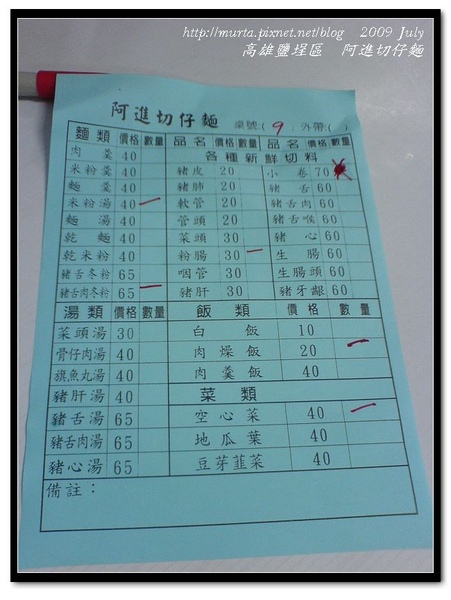 http://murta.pixnet.net/blog 2009 July
高雄鹽埕區 阿進切仔麵
阿進切仔麵 桌號:( 9 ) 外帶:( )
麵類 價格 數量 品名 價格 數量 品名 價格 數量
肉羹 40 各種新鮮切料
米粉羹 40 豬皮 20 小卷 70
麵羹 40 豬肺 20 豬舌 60
米粉湯 40 軟管 20 豬舌肉 60
麵湯 40 管頭 20 豬舌喉 60
乾麵 40 菜頭 30 豬心 60
乾米粉 40 粉腸 30 生腸 60
豬舌冬粉 65 咽管 30 生腸頭 60
豬舌肉冬粉 65 豬肝 30 豬牙齦 60
湯類 價格 數量 飯類 價格 數量
菜頭湯 30 白飯 10
骨仔肉湯 40 肉燥飯 20
旗魚丸湯 40 肉羹飯 40
豬肝湯 40 菜類
豬舌湯 65 空心菜 40
豬舌肉湯 65 地瓜葉 40
豬心湯 65 豆芽韮菜 40
備註：